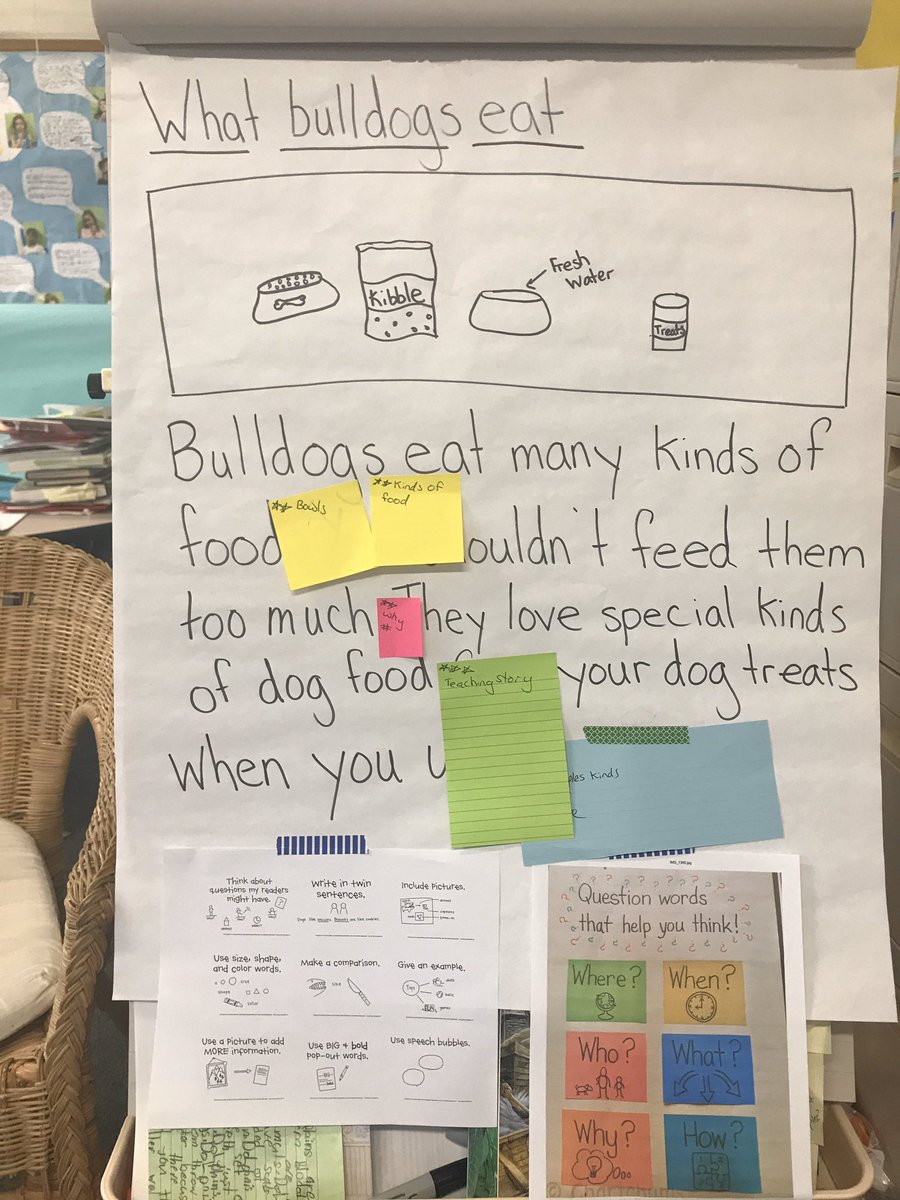 What bulldogs eat
Kibble
Fresh
Water
Treats
Bulldogs eat many kinds of
** Bowls
** Kinds of
food
food ouldn't feed them
too much They love special kinds
**
why
#
of dog food your dog treats
***
Teaching story
when you u
ples kinds
Think about
questions my readers
might have.
Write in twin
sentences.
Include Pictures.
Use size, shape,
and color words.
size
shape
color
Make a comparison.
size
Give an example.
Use a Picture to add
MORE information.
Use BIG + bold
pop-out words.
Use speech bubbles.
Question words
that help you think!
Where?
When?
Who?
What?
Why?
How?